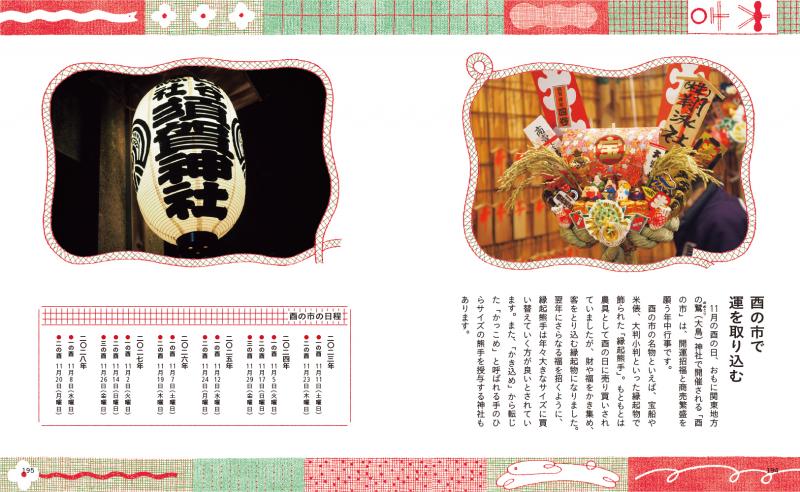 酉の市で
運を取り込む
11月の酉の日、おもに関東地方
の鷲（大鳥）神社で開催される「酉
の市」は、開運招福と商売繁盛を
願う年中行事です。
酉の市の名物といえば、宝船や
米俵、大判小判といった縁起物で
飾られた「縁起熊手」。もともとは
農具として酉の日に売り買いされ
ていましたが、財や福をかき集め、
客をとり込む縁起物になりました。
翌年にさらなる福を招くように、
縁起熊手は年々大きなサイズに買
い替えていく方が良いとされてい
ます。また、「かき込め」から転じ
た「かっこめ」と呼ばれる手のひ
らサイズの熊手を授与する神社も
あります。
194
須賀神社
酉の市の日程
二〇二三年
一の酉 11月11日（土曜日）
二の酉 11月23日（木曜日）
二〇二四年
一の酉 11月5日（火曜日）
二の酉 11月17日（日曜日）
三の酉 11月29日（金曜日）
二〇二五年
一の酉 11月12日（水曜日）
二の酉 11月24日（月曜日）
二〇二六年
一の酉 11月7日（土曜日）
二の酉 11月19日（木曜日）
二〇二七年
一の酉 11月2日（火曜日）
二の酉 11月14日（日曜日）
三の酉 11月26日（金曜日）
二〇二八年
一の酉 11月8日（水曜日）
二の酉 11月20日（月曜日）
195